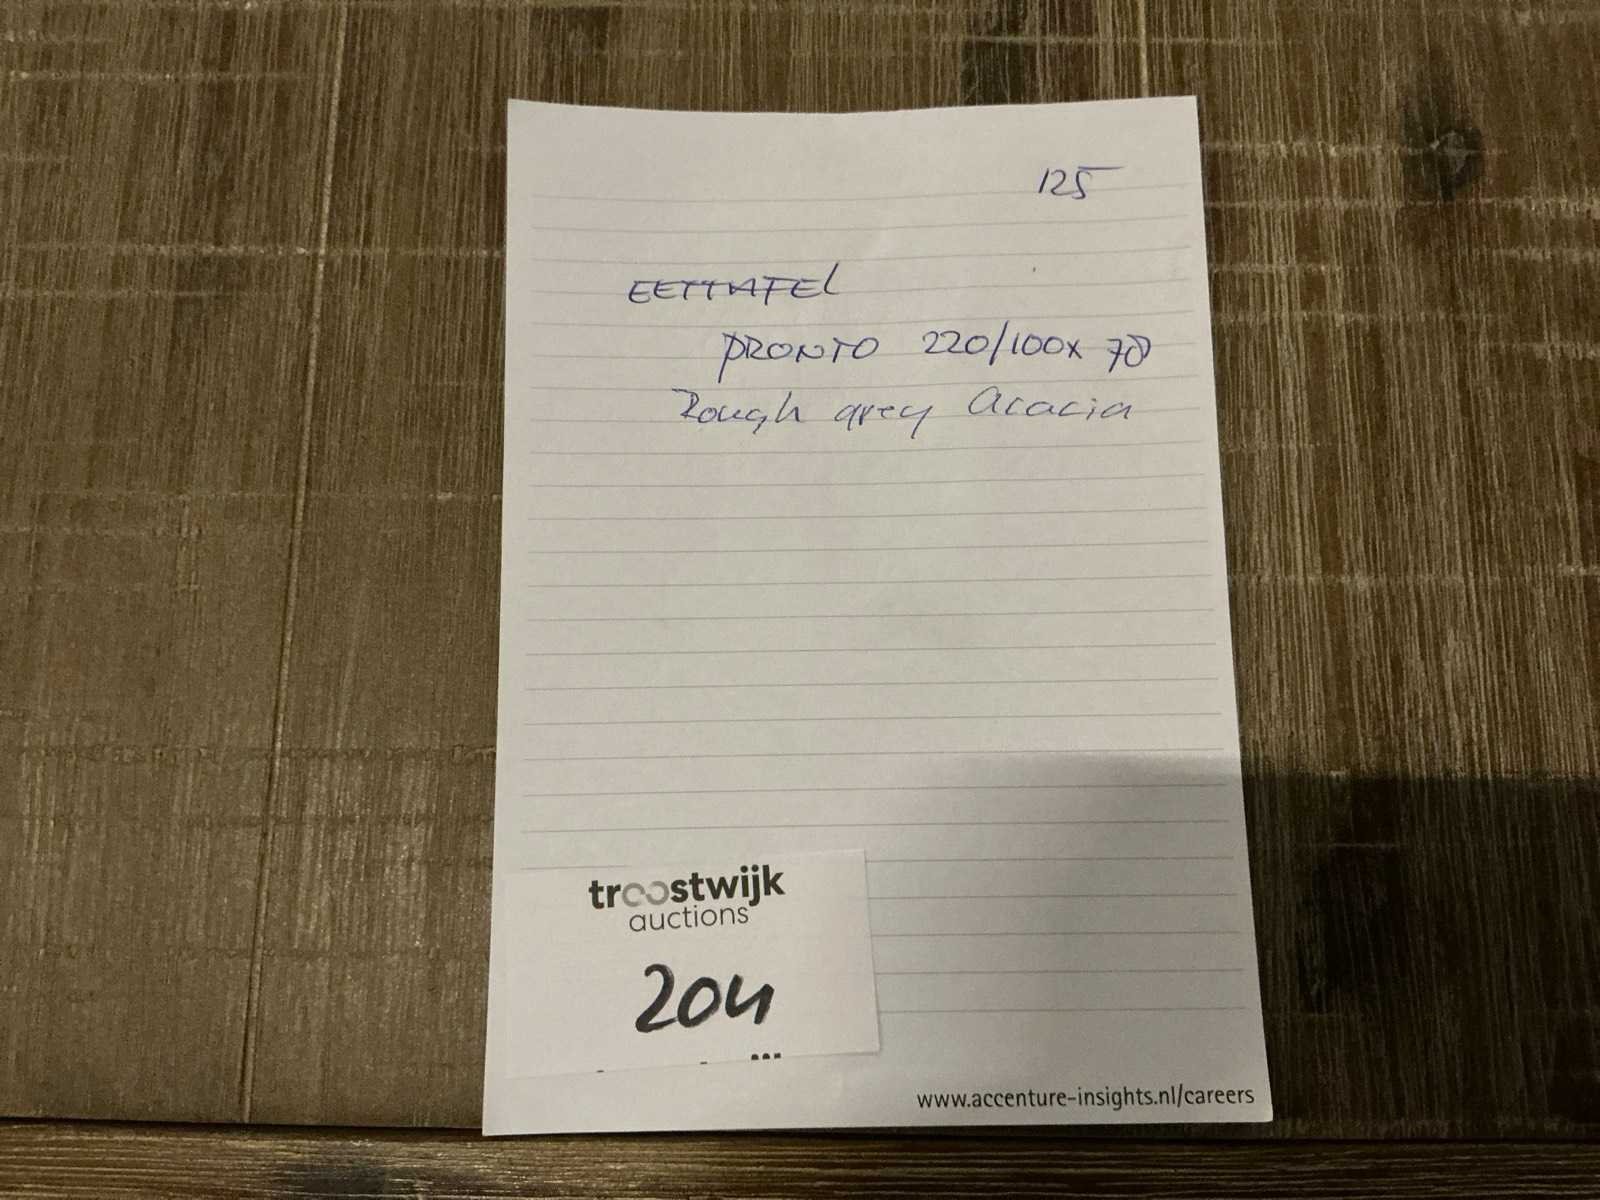 125
EETTAFEL
PRONTO 220/100x 78
Rough grey Acacia
troostwijk
auctions
204
www.accenture-insights.nl/careers